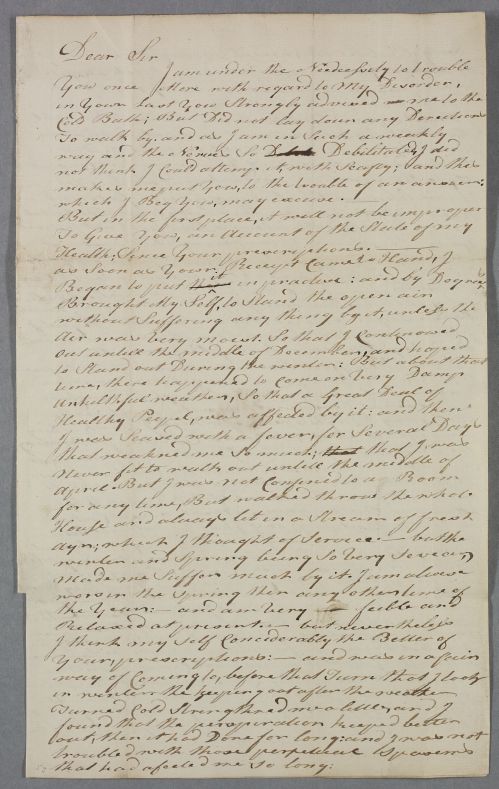 Dear Sir
I am under the Needcessety to trouble
You once More with regard to My Disorder,
in Your Last You Strongly advised me to the
Cold Bath; But Did not lay down any Direction
To walk by, and as I am in Such a weakly
way and the Nerves So Debilitated, I did
not think I Could attempt it with Seafty; and this
makes me put You, to the trouble of an answer;
which I Beg You, may excuse.
But in the first place, it will not be improper
To Give You, an Account of the State of my
Health, Since Your prescriptions.
as Soon as Your Receipt Came to Hand, I
Began to put it in practice: and by Degrees
Brought My Self, to Stand the open air
without Suffering any thing by it, unless the
Air was Very moist. So that I Continowed
out untile the middle of December, and hoped
to Stand out During the winter: But about that
time, there happened to Come on Very Damp
Unhilthful weather, So that a Great Deal of
Healthy Peopel, was affected by it: and then
I was Seased with a fever, for Several Days
that weakned me So much; that I was
Never fit to walk out untile the middle of
April. But I was not Confined to a Room
for any time, But walked throw the whole
House and always let in a Stream of fresh
Ayr; which I thought of Service - but the
winter and Spring being So Very Sevear,
Made me Suffer much by it. I am alwise
wors in the Spring then any other time of
the Year: - and am Very feible and
Relaxed at present: - but nevertheless
I think my Self Considerably the Better of
Your prescriptions: - and was in a fair
way of Coming to, before that Turn that I took
in winter: the keeping out after the weather
Turned Cold Strengthned me a little, and I
found that the perspiration keeped better
out, then it had Done for long: and I was not
troubled with those perpetual Spasems
that had afected me So long: